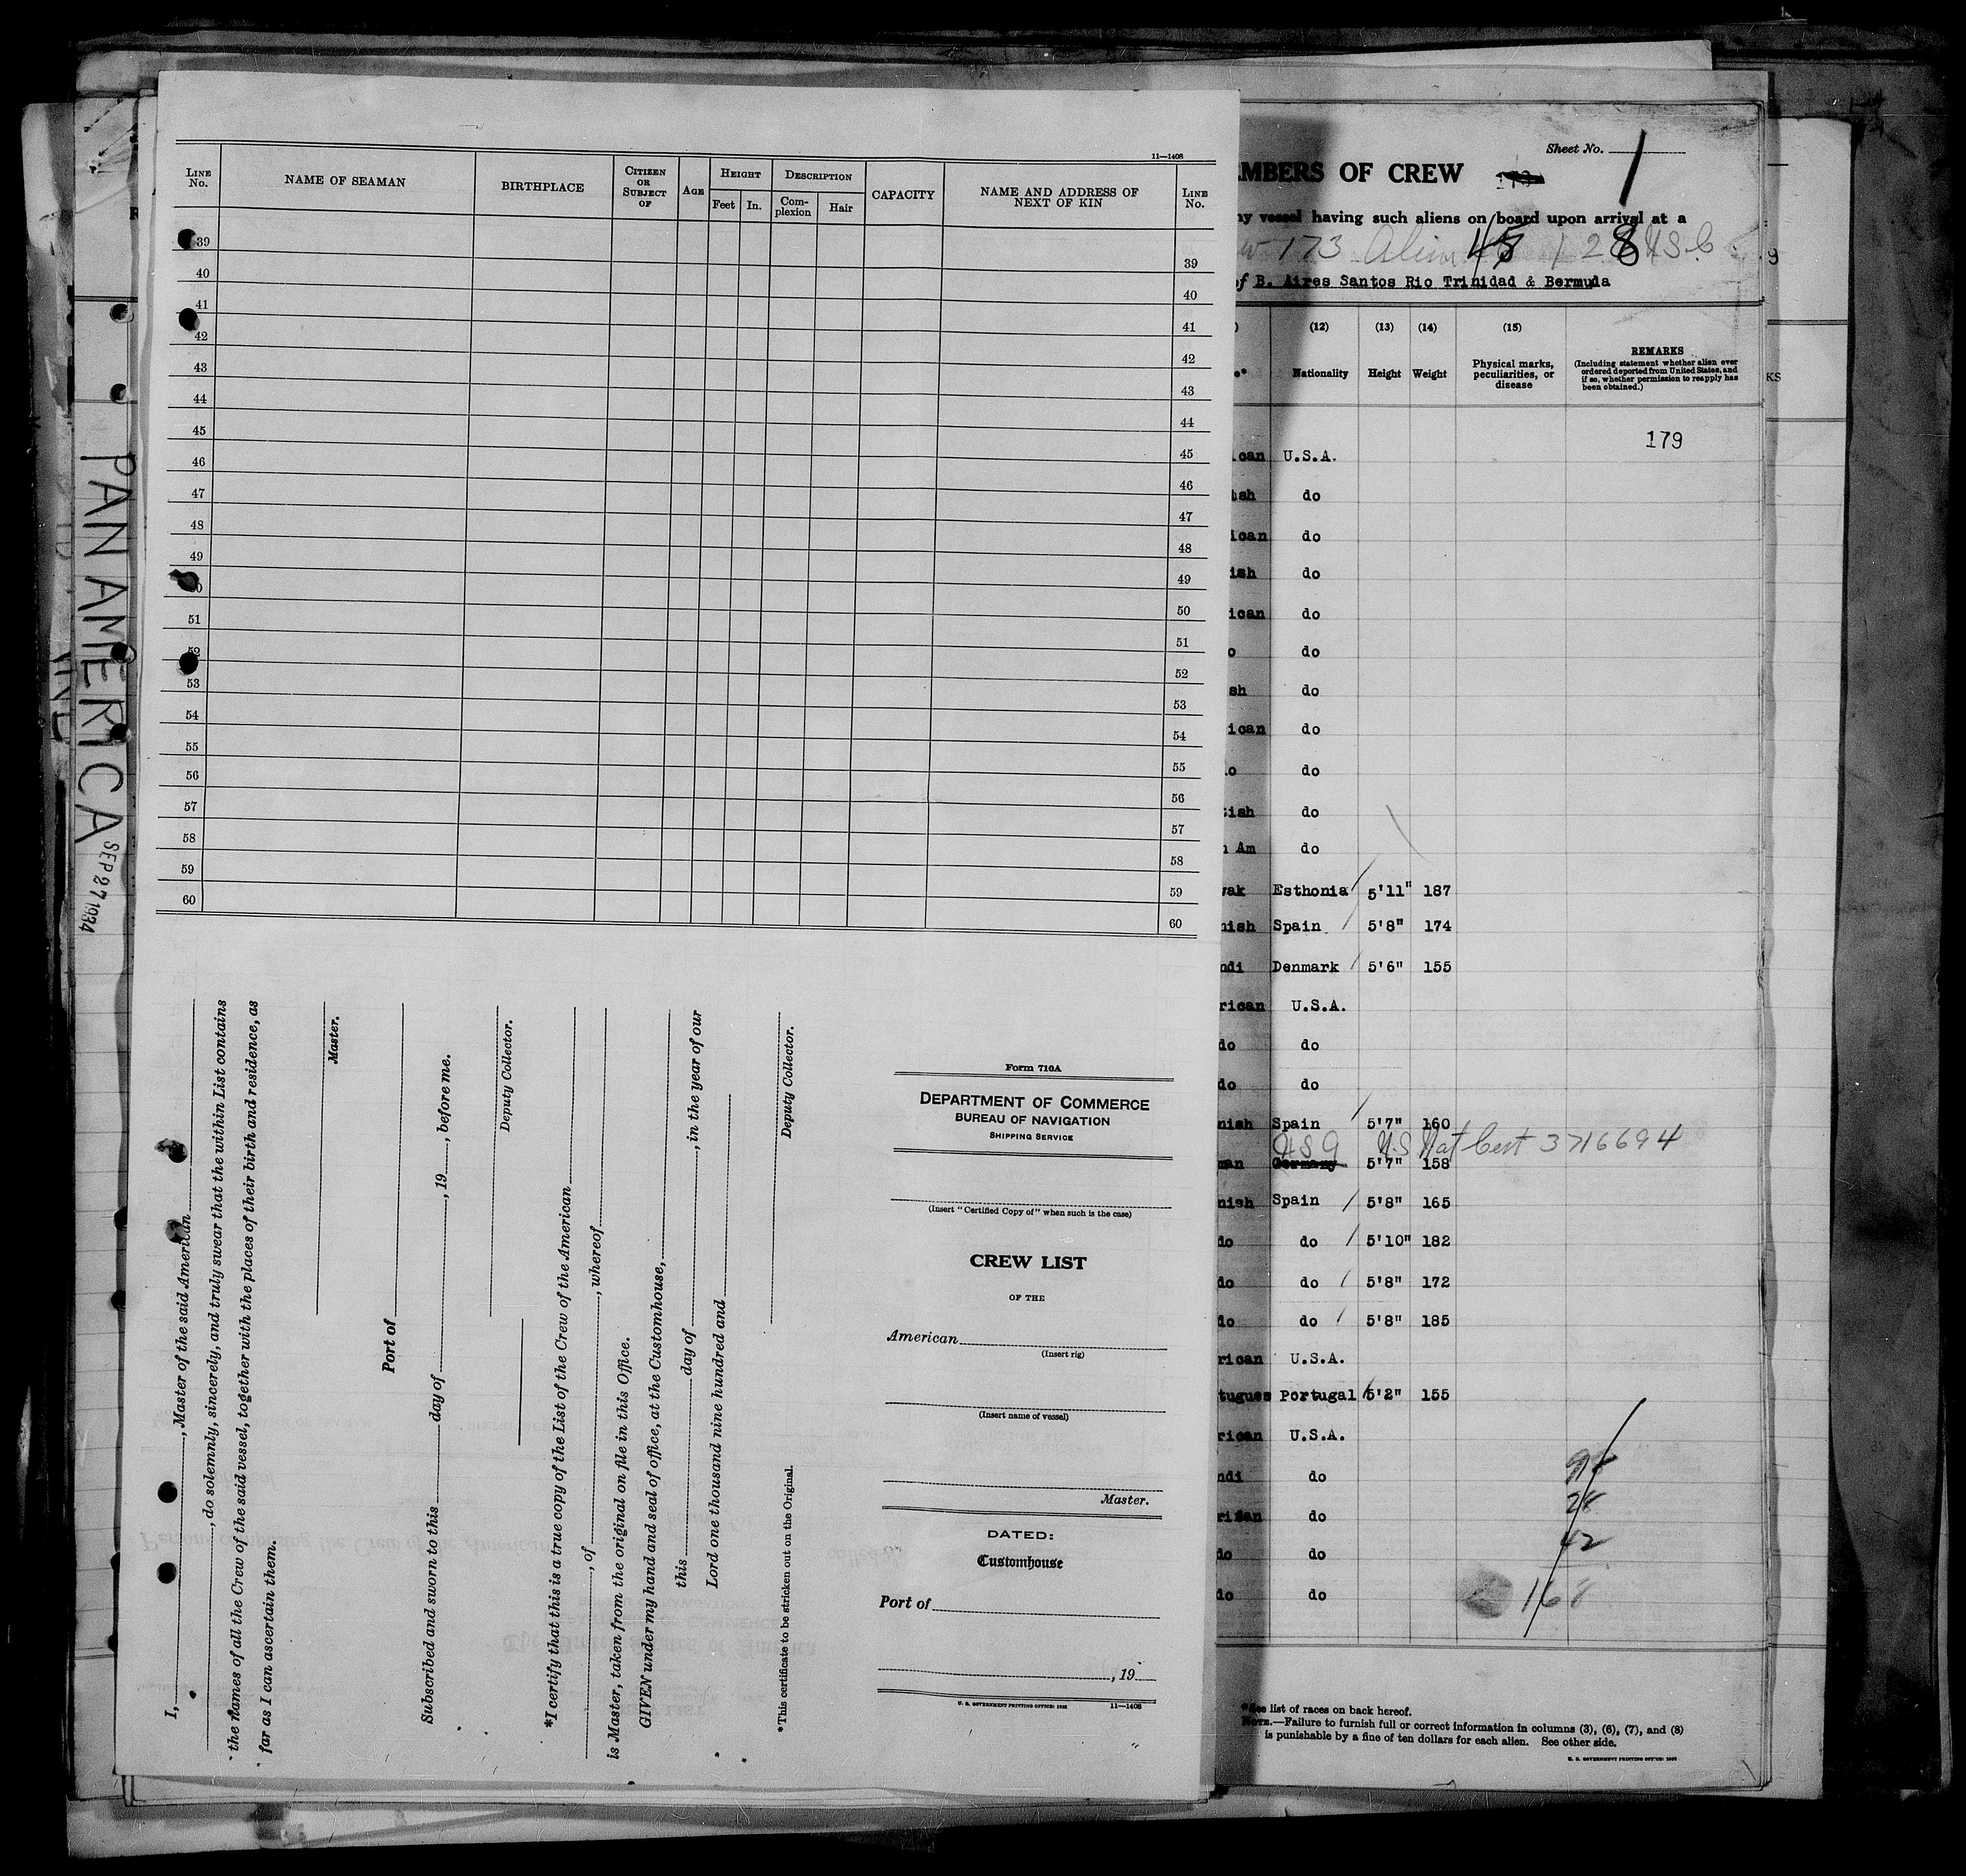 PAN AMERICA
SEP 27 1934
11—1408
LINE No.
NAME OF SEAMAN
BIRTHPLACE
CITIZEN OR SUBJECT OF
AGE
HEIGHT
Feet
In.
DESCRIPTION
Com-plexion
Hair
CAPACITY
NAME AND ADDRESS OF NEXT OF KIN
LINE No.
39
40
41
42
43
44
45
46
47
48
49
51
52
53
54
55
56
57
58
59
60
39
40
41
42
43
44
45
46
47
48
49
50
51
52
53
54
55
56
57
58
59
60
I, , Master of the said American
, do solemnly, sincerely, and truly swear that the within List contains
the names of all the Crew of the said vessel, together with the places of their birth and residence, as
far as I can ascertain them.
Master.
Port of
Subscribed and sworn to this day of , 19 , before me.
Deputy Collector.
*I certify that this is a true copy of the List of the Crew of the American
, of , whereof
is Master, taken from the original on file in this Office.
GIVEN under my hand and seal of office, at the Customhouse,
this day of , in the year of our
Lord one thousand nine hundred and
Deputy Collector.
*This certificate to be stricken out on the Original.
Form 710A
DEPARTMENT OF COMMERCE
BUREAU OF NAVIGATION
SHIPPING SERVICE
(Insert "Certified Copy of" when such is the case)
CREW LIST
OF THE
American
(Insert rig)
(Insert name of vessel)
Master.
DATED:
Customhouse
Port of
, 19
U. S. GOVERNMENT PRINTING OFFICE: 1932 11—1408
Sheet No. 1
MBERS OF CREW
ny vessel having such aliens on board upon arrival at a
173 Alien 45 128 USC
of B. Aires Santos Rio Trinidad & Bermuda
(12) (13) (14) (15)
Nationality Height Weight
Physical marks, peculiarities, or disease
REMARKS
(Including statement whether alien ever ordered deported from United States, and if so, whether permission to reapply has been obtained.)
179
ican U.S.A.
ish do
ican do
ish do
ican do
o do
sh do
ican do
o do
ish do
n Am do
vak Esthonia 5'11" 187
nish Spain 5'8" 174
ndi Denmark 5'6" 155
rican U.S.A.
do do
do do
nish Spain 5'7" 160
USA U.S Nat Cert 3716694
man Germany 5'7" 158
nish Spain 5'8" 165
do do 5'10" 182
do do 5'8" 172
do do 5'8" 185
rican U.S.A.
tugues Portugal 5'2" 155
rican U.S.A.
ndi do
rican do
do do
42
do do
168
*See list of races on back hereof.
NOTE.—Failure to furnish full or correct information in columns (3), (6), (7), and (8)
is punishable by a fine of ten dollars for each alien. See other side.
U. S. GOVERNMENT PRINTING OFFICE: 1932